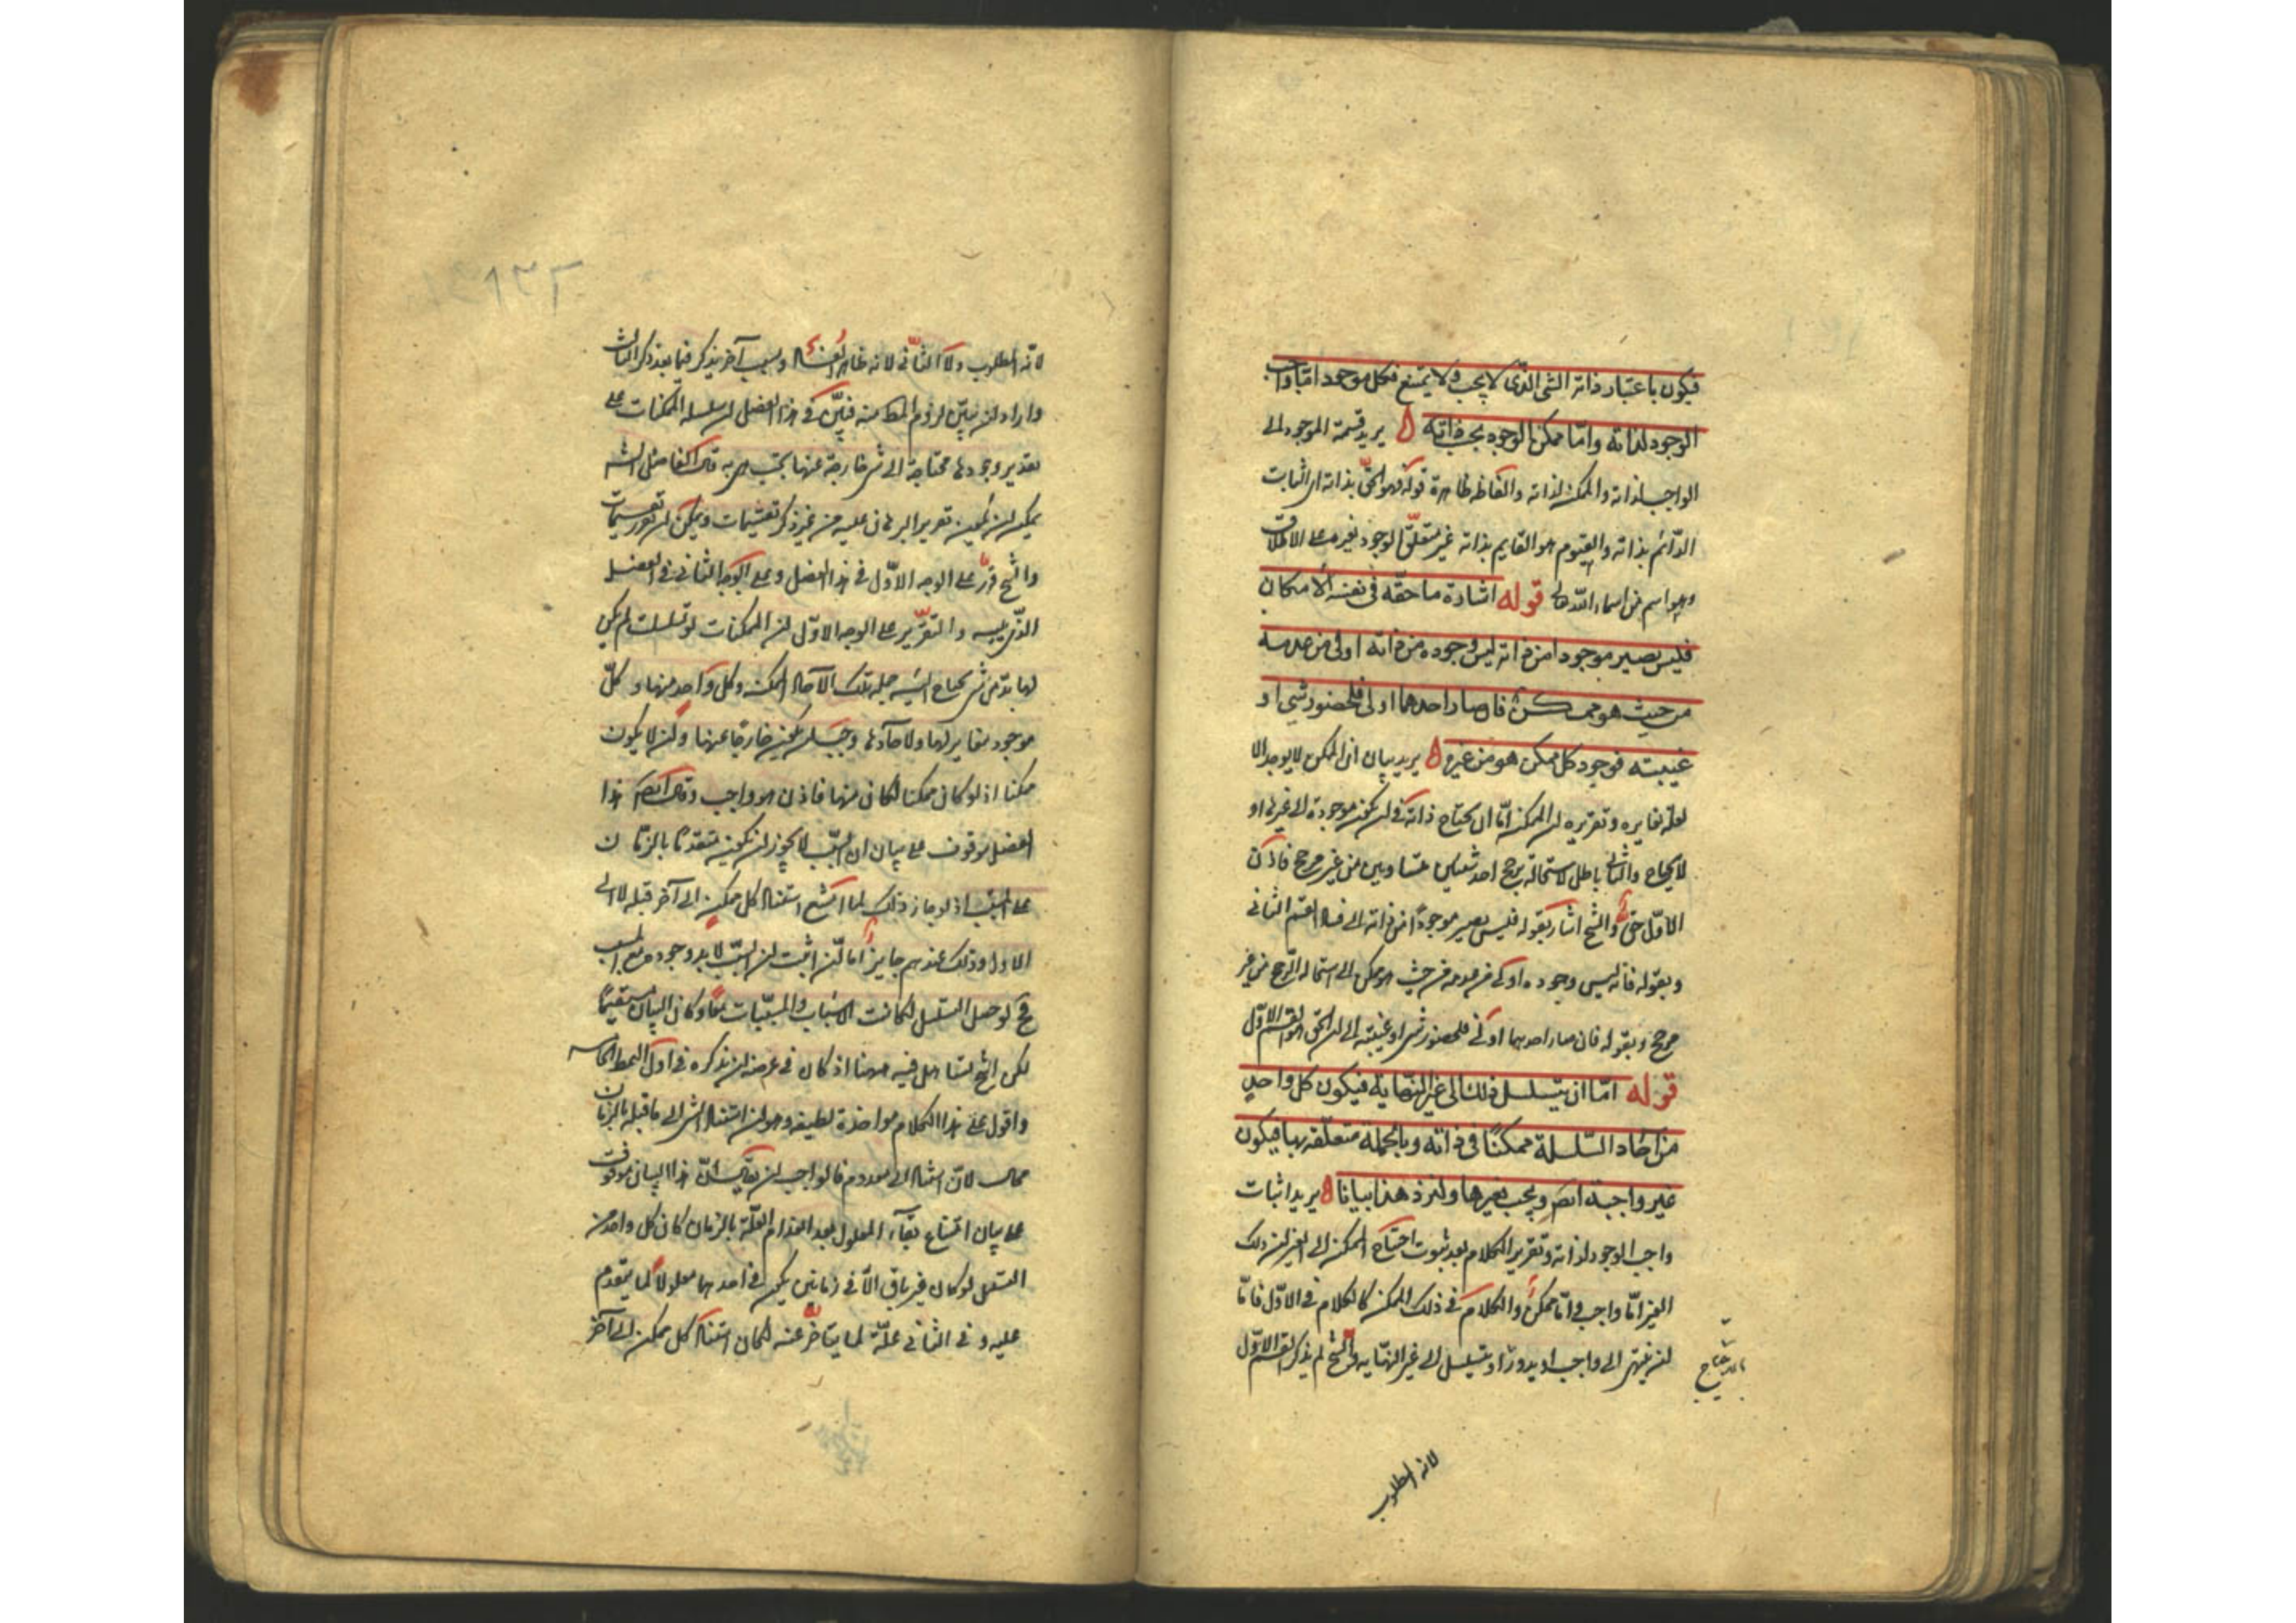 فيكون باعتبار ذاته الشى الذى لا يجب ولا يمتنع فكل موجود اما واجب
الوجود لذاته واما ممكن الوجود بحسب ذاته ه يريد قسمة الموجود الى
الواجب لذاته والممكن لذاته والفاظه ظاهرة قوله فهو الحق بذاته اى الثابت
الدائم بذاته والقيوم هو القايم بذاته غير متعلق الوجود بغيره على الاطلاق
وهو اسم من اسماء الله تعالى قوله اشارة ما حقه فى نفسه الامكان
فليس يصير موجودا من ذاته ليس وجوده من ذاته اولى من عدمه
من حيث هو ممكن فان صار احدهما اولى فلحضور شىء او
غيبته فوجود كل ممكن هو من غيره ه يريد بيان ان الممكن لا يوجد الا
لعلة تغايره وتقريره ان الممكن اما ان يحتاج ذاته فى ان يكون موجودة الى غيرها او
لا يحتاج والثانى باطل لاستحالة ترجح احد شيئين متساويين من غير مرجح فاذن
الاول حق والشيخ اشار بقوله فليس يصير موجودا من ذاته الى فساد القسم الثانى
وبقوله فانه ليس وجوده اولى من عدمه من حيث هو ممكن الى استحالة الترجح من غير
مرجح وبقوله فان صار احدهما اولى فلحضور شى او غيبته الى ان الحق هو القسم الاول
قوله اما ان يتسلسل ذلك الى غير النهاية فيكون كل واحد
من احاد السلسلة ممكنا فى ذاته وبالجملة متعلقة بها فيكون
غير واجبة ايضا ويجب بغيرها ولنزد هذا بيانا ه يريد اثبات
واجب الوجود لذاته وتقرير الكلام بعد ثبوت احتياج الممكن الى الغير ان ذلك
الغير اما واجب واما ممكن والكلام فى ذلك الممكن كالكلام فى الاول فاما
ان ينتهى الى واجب او يدور او يتسلسل الى غير النهاية والشيخ لم يذكر القسم الاول
لانه المطلوب
لانه المطلوب ولا الثانى لانه ظاهر الفساد ولسبب آخر يذكر فيما بعد فذكر الثالث
واراد ان يبين لزوم المط منه فبين فى هذا الفصل ان سلسلة الممكنات على
تقدير وجودها محتاجة الى شى خارجة عنها يجب هى به قال الفاضل الشه
يمكن ان يكون تقرير البرهان عليه من غير ذكر تقسيمات ويمكن ان تقسيمات
والشيخ قرر على الوجه الاول فى هذا الفصل وعلى الوجه الثانى فى الفصل
الذى يليه والتقرير على الوجه الاول ان الممكنات لو تسلسلت لم يكن
لها بد من شى يحتاج اليه جملة تلك الآحاد الممكنة وكل واحد منها وكل
موجود مغاير لها ولآحادها وجب ان يكون خارجا عنها وان لا يكون
ممكنا اذ لو كان ممكنا لكان منها فاذن هو واجب وقال ايضا هذا
الفصل موقوف على بيان ان السبب لا يجوز ان يكون متقدما بالزمان
على المسبب اذ لو جاز ذلك لما امتنع استناد كل ممكن الى آخر قبله لا الى
الاول وذلك عندهم جايز اما لئن اثبت ان السبب لا بد وجوده مع المسبب
فح لو حصل التسلسل لكانت الاسباب والمسببات معا وكان البيان مستقيما
لكن الشيخ تساهل فيه ههنا اذ كان فى عرضه ان يذكره فى اول النمط الخامس
واقول على هذا الكلام مواخذة لطيفة وهو ان استناد الشى الى ما قبله بالزمان
محال لان استناد الى معدوم فالواجب ان يقال ان هذا البيان موقوف
على بيان امتناع بقاء المعلول بعد انعدام العلة بالزمان كان كل واحد من
التسلسل لو كان غير باق الا فى زمانين يكون فى احدهما معلولا لما يتقدم
عليه و فى الثانى علة لما يتاخر عنه لكان استناد كل ممكن الى آخر